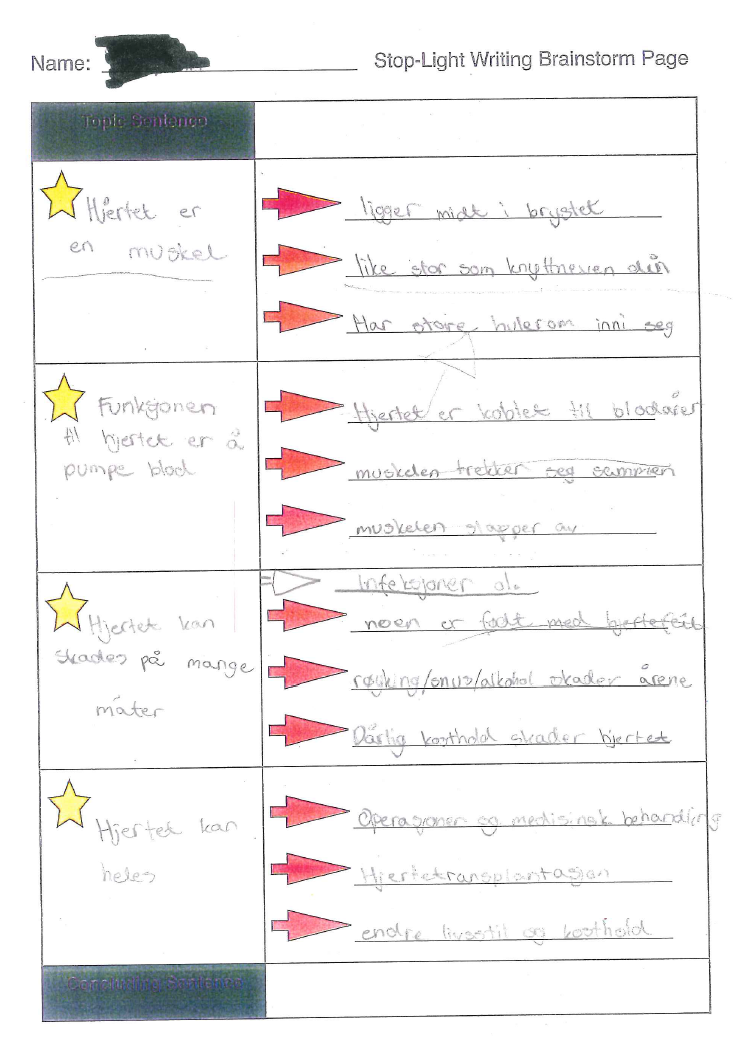 Name:
Stop-Light Writing Brainstorm Page
Topic Sentence
Hjertet er
en muskel
ligger midt i brystet
like stor som knyttneven din
Har store hulerom inni seg
Funksjonen
til hjertet er å
pumpe blod
Hjertet er koblet til blodårer
muskelen trekker seg sammen
muskelen slapper av
Hjertet kan
skades på mange
måter
Infeksjoner ol.
noen er født med hjertefeil
røyking/snus/alkohol skader årene
Dårlig kosthold skader hjertet
Hjertet kan
heles
Operasjoner og medisinsk behandling
Hjertetransplantasjon
endre livsstil og kosthold
Concluding Sentence